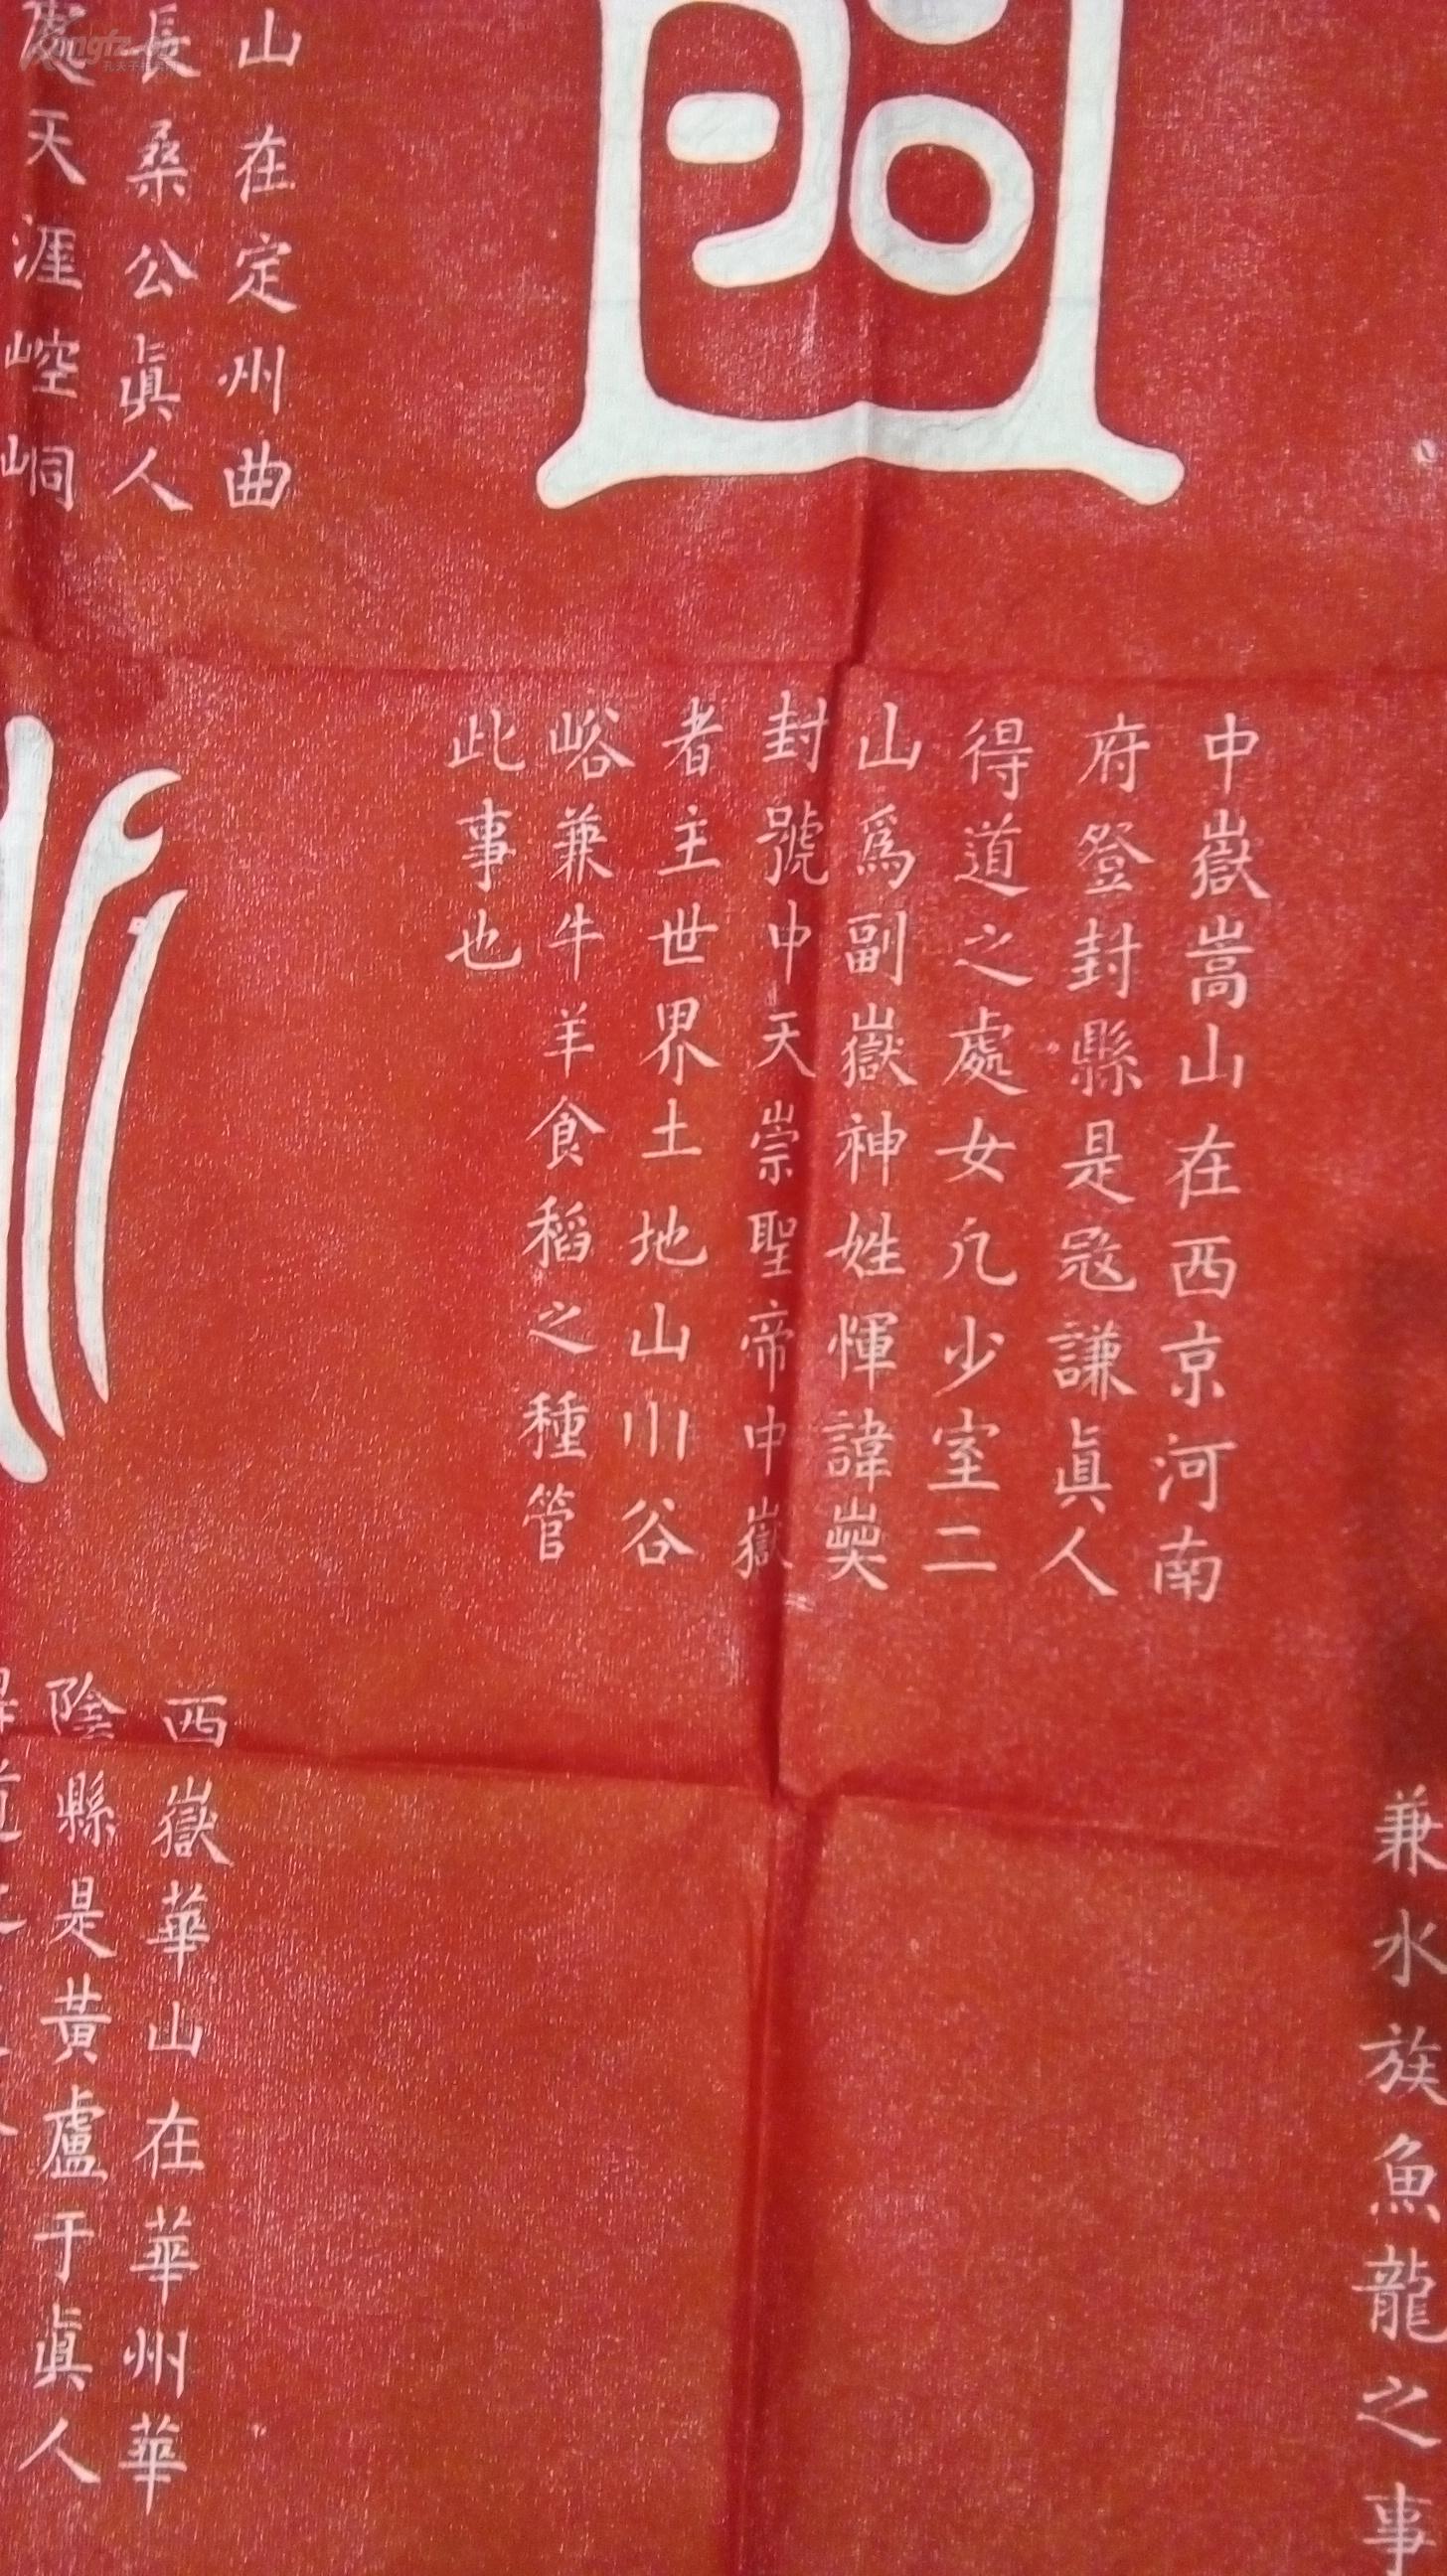 山在定州曲
長桑公眞人
處天涯崆峒
中嶽嵩山在西京河南
府登封縣是𡨥謙眞人
得道之處女几少室二
山爲副嶽神姓惲諱
封號中天崇聖帝中嶽
者主世界土地山川谷
峪兼牛羊食稻之種管
此事也
兼水族魚龍之事
西嶽華山在華州華
陰縣是黃盧于眞人
得道之